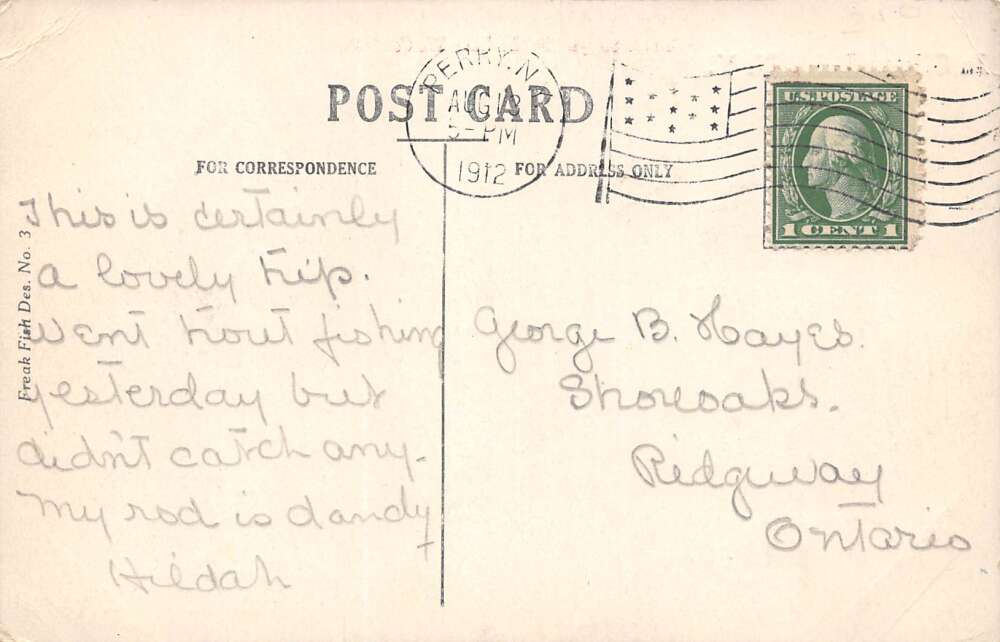 PERRY, N
AUG
5-PM
1912
POST CARD
U.S. POSTAGE
1 CENT 1
FOR CORRESPONDENCE
FOR ADDRESS ONLY
Freak Fish Des. No. 3
This is certainly
a lovely trip.
Went trout fishing
yesterday but
didn't catch any.
My rod is dandy
Hildah
George B. Hayes.
Shoreoaks.
Ridgeway
Ontario